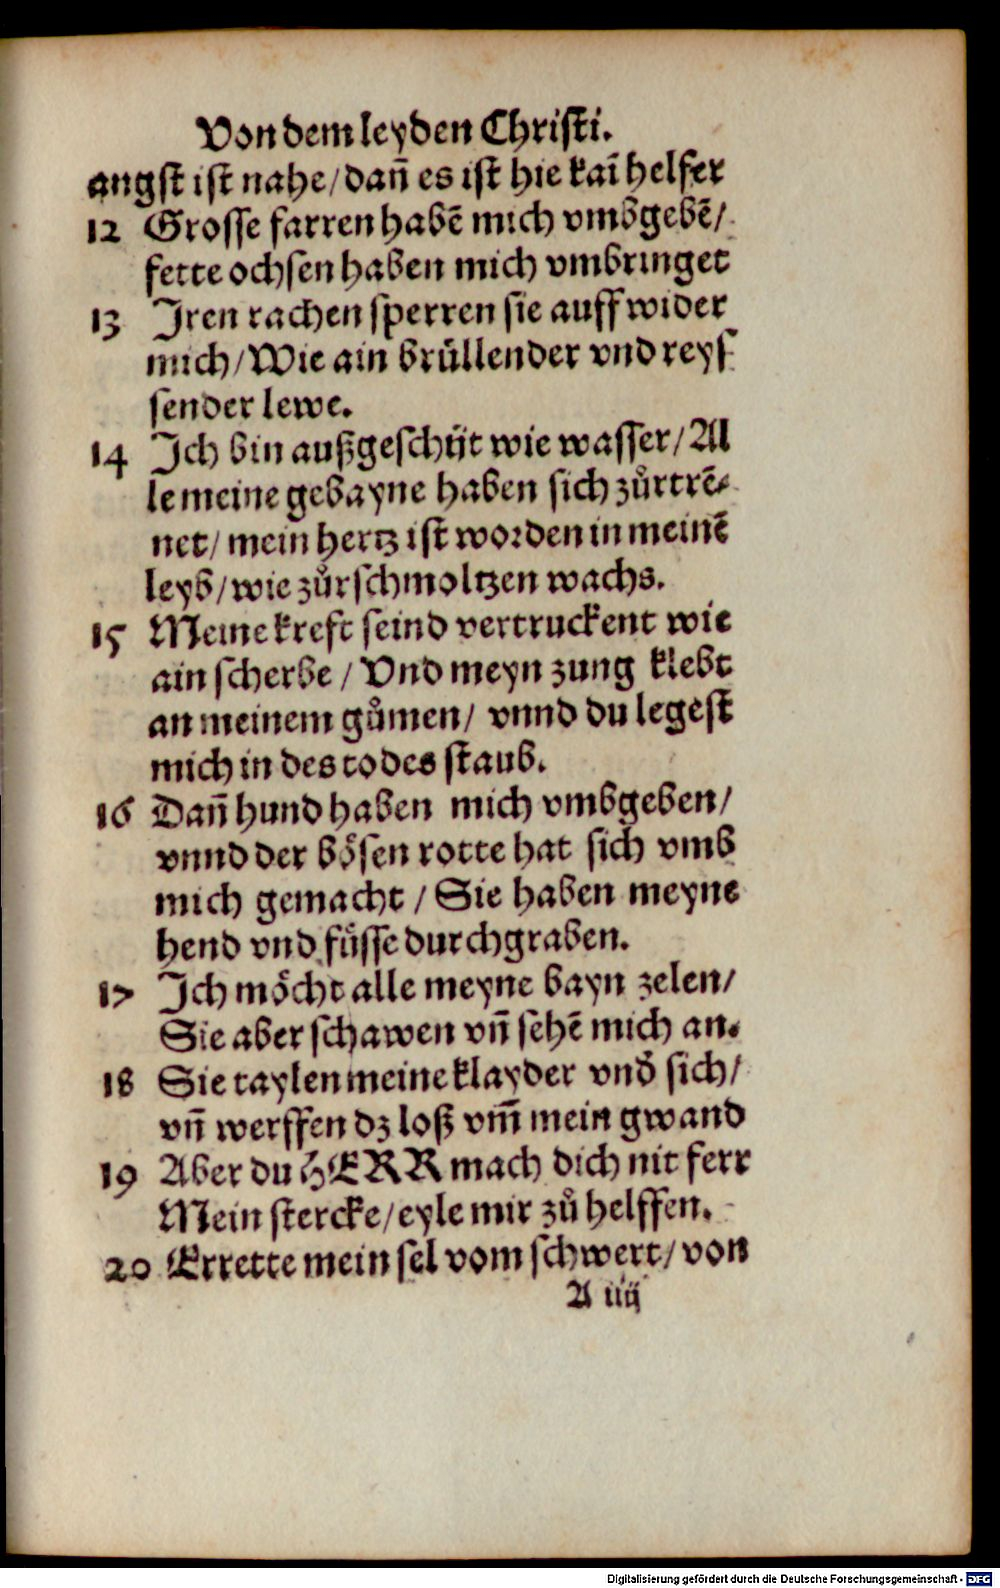 Von dem leyden Christi.
angst ist nahe/ dañ es ist hie kaĩ helfer
12 Grosse farren habẽ mich vmbgebẽ/
fette ochsen haben mich vmbringet
13 Jren rachen sperren sie auff wider
mich/ Wie ain brüllender vnd reys
sender lewe.
14 Jch bin außgeschüt wie wasser/ Al
le meine gebayne haben sich zůrtrẽ-
net/ mein hertz ist worden in meinẽ
leyb/ wie zůrschmoltzen wachs.
15 Meine kreft seind vertruckent wie
ain scherbe / Vnd meyn zung klebt
an meinem gůmen/ vnnd du legest
mich in des todes staub.
16 Dañ hund haben mich vmbgeben/
vnnd der bösen rotte hat sich vmb
mich gemacht / Sie haben meyne
hend vnd füsse durchgraben.
17 Jch möcht alle meyne bayn zelen/
Sie aber schawen vñ sehẽ mich an.
18 Sie taylen meine klayder vnd̕ sich/
vñ werffen dz loß vm̃ mein gwand
19 Aber du HERR mach dich nit ferr
Mein stercke/ eyle mir zů helffen.
20 Errette mein sel vom schwert/ von
A iiij
Digitalisierung gefördert durch die Deutsche Forschungsgemeinschaft - DFG